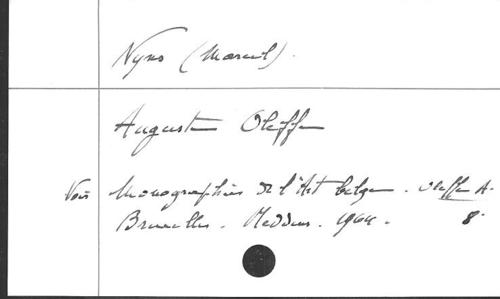 Nyns (Marcel).
Auguste Oleffe
Voir Monographies de l'Art belge. Oleffe A.
Bruxelles. Meddens. 1944. 8°